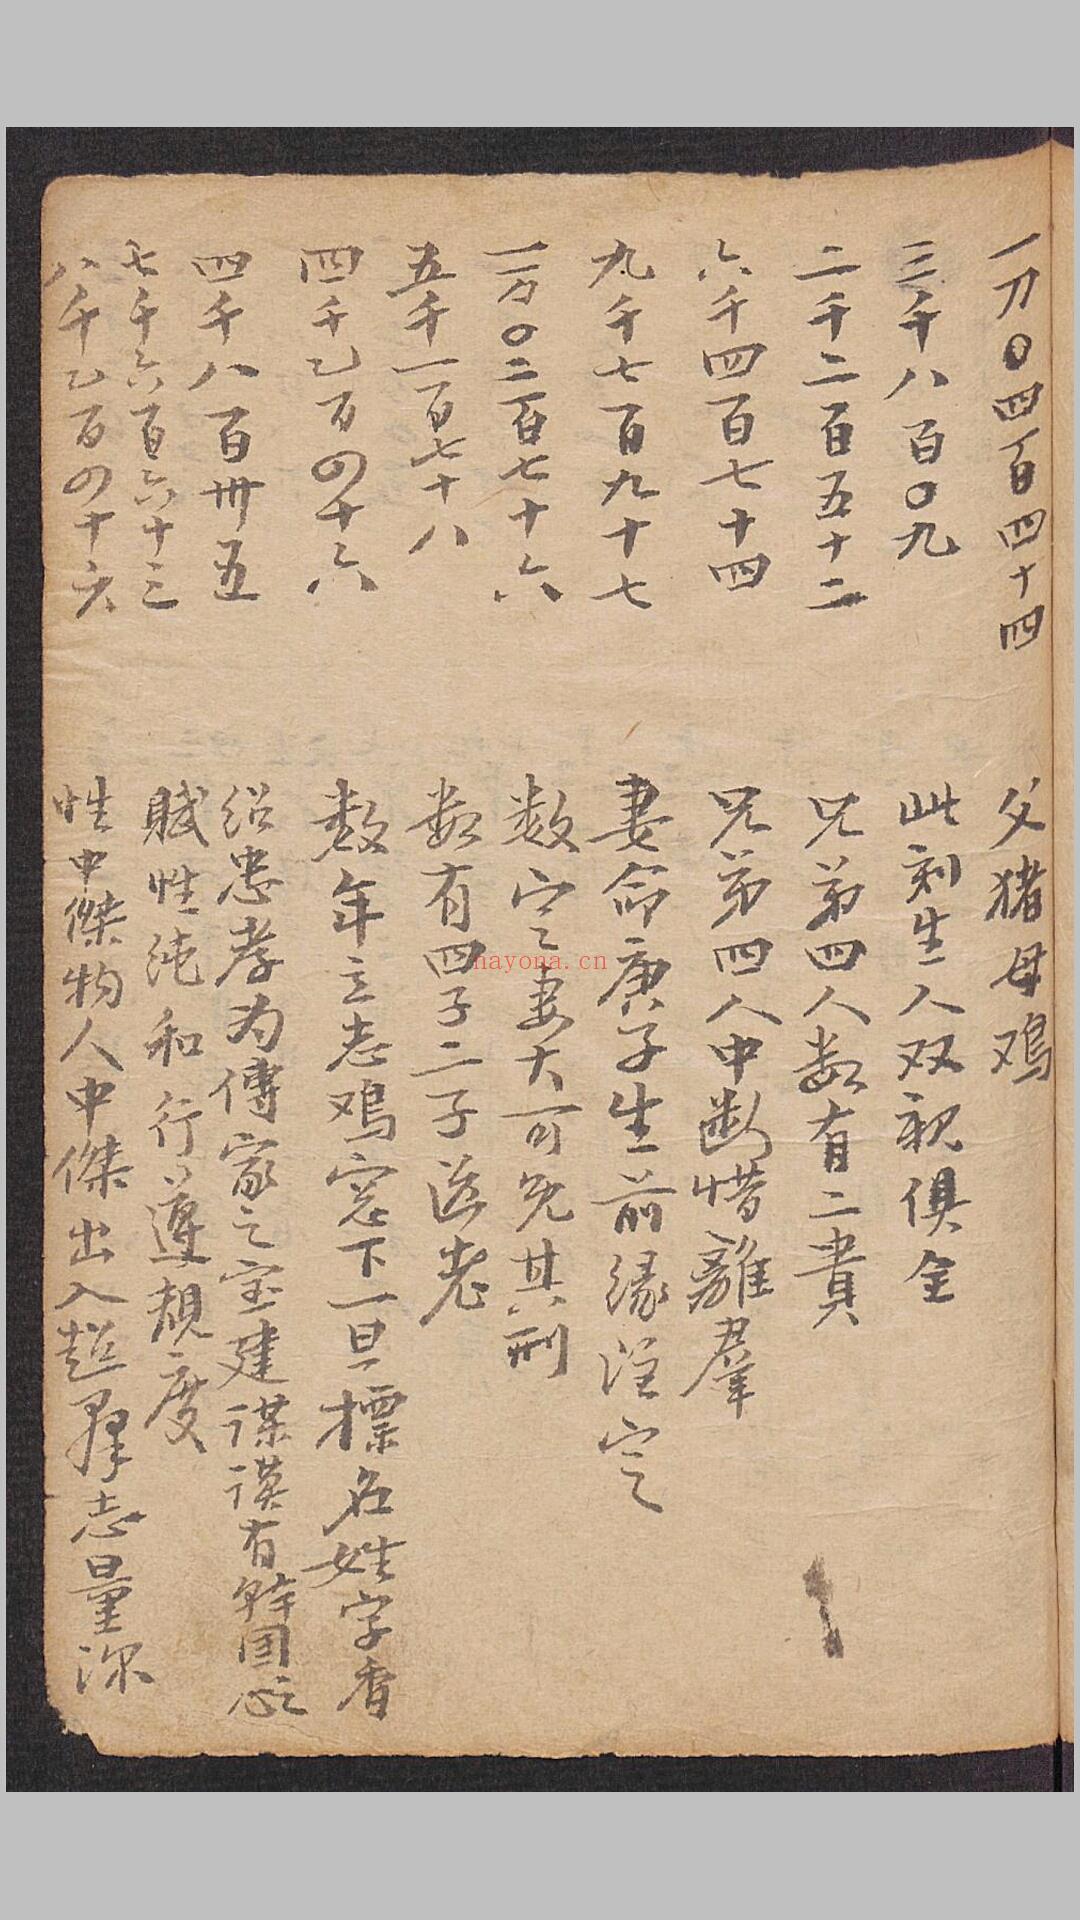 一万〇四百四十四 父猪母鸡
三千八百〇九 此刻生人双亲俱全
二千二百五十二 兄弟四人数有二贵
六千四百七十四 兄弟四人中断惜離羣
九千七百九十七 妻命庚子生前缘注定
一万〇二百七十六 数定妻大可免其刑
五千一百七十八 数有四子二子送老
四千乙百四十六 数年立志鸡窓下一旦标名姓字香
四千八百卅五 绍忠孝为傳家之宝建谋谟有幹国心
七千六百六十三 賦性纯和行遵規度
八千乙百四十六 性中傑物人中傑出入超群志量深
nayona.cn